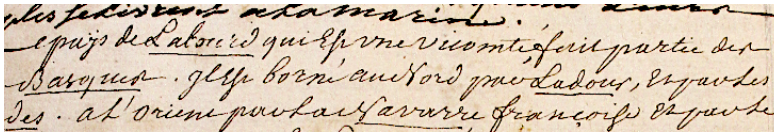 plus se disent a la marine.
e païs de Labourd qui Est Vne vicomté fait partie des
Basques. Il Est borné au Nord par Ladour, Et par les
des. a l'orient par la Navarre françoise Et par le